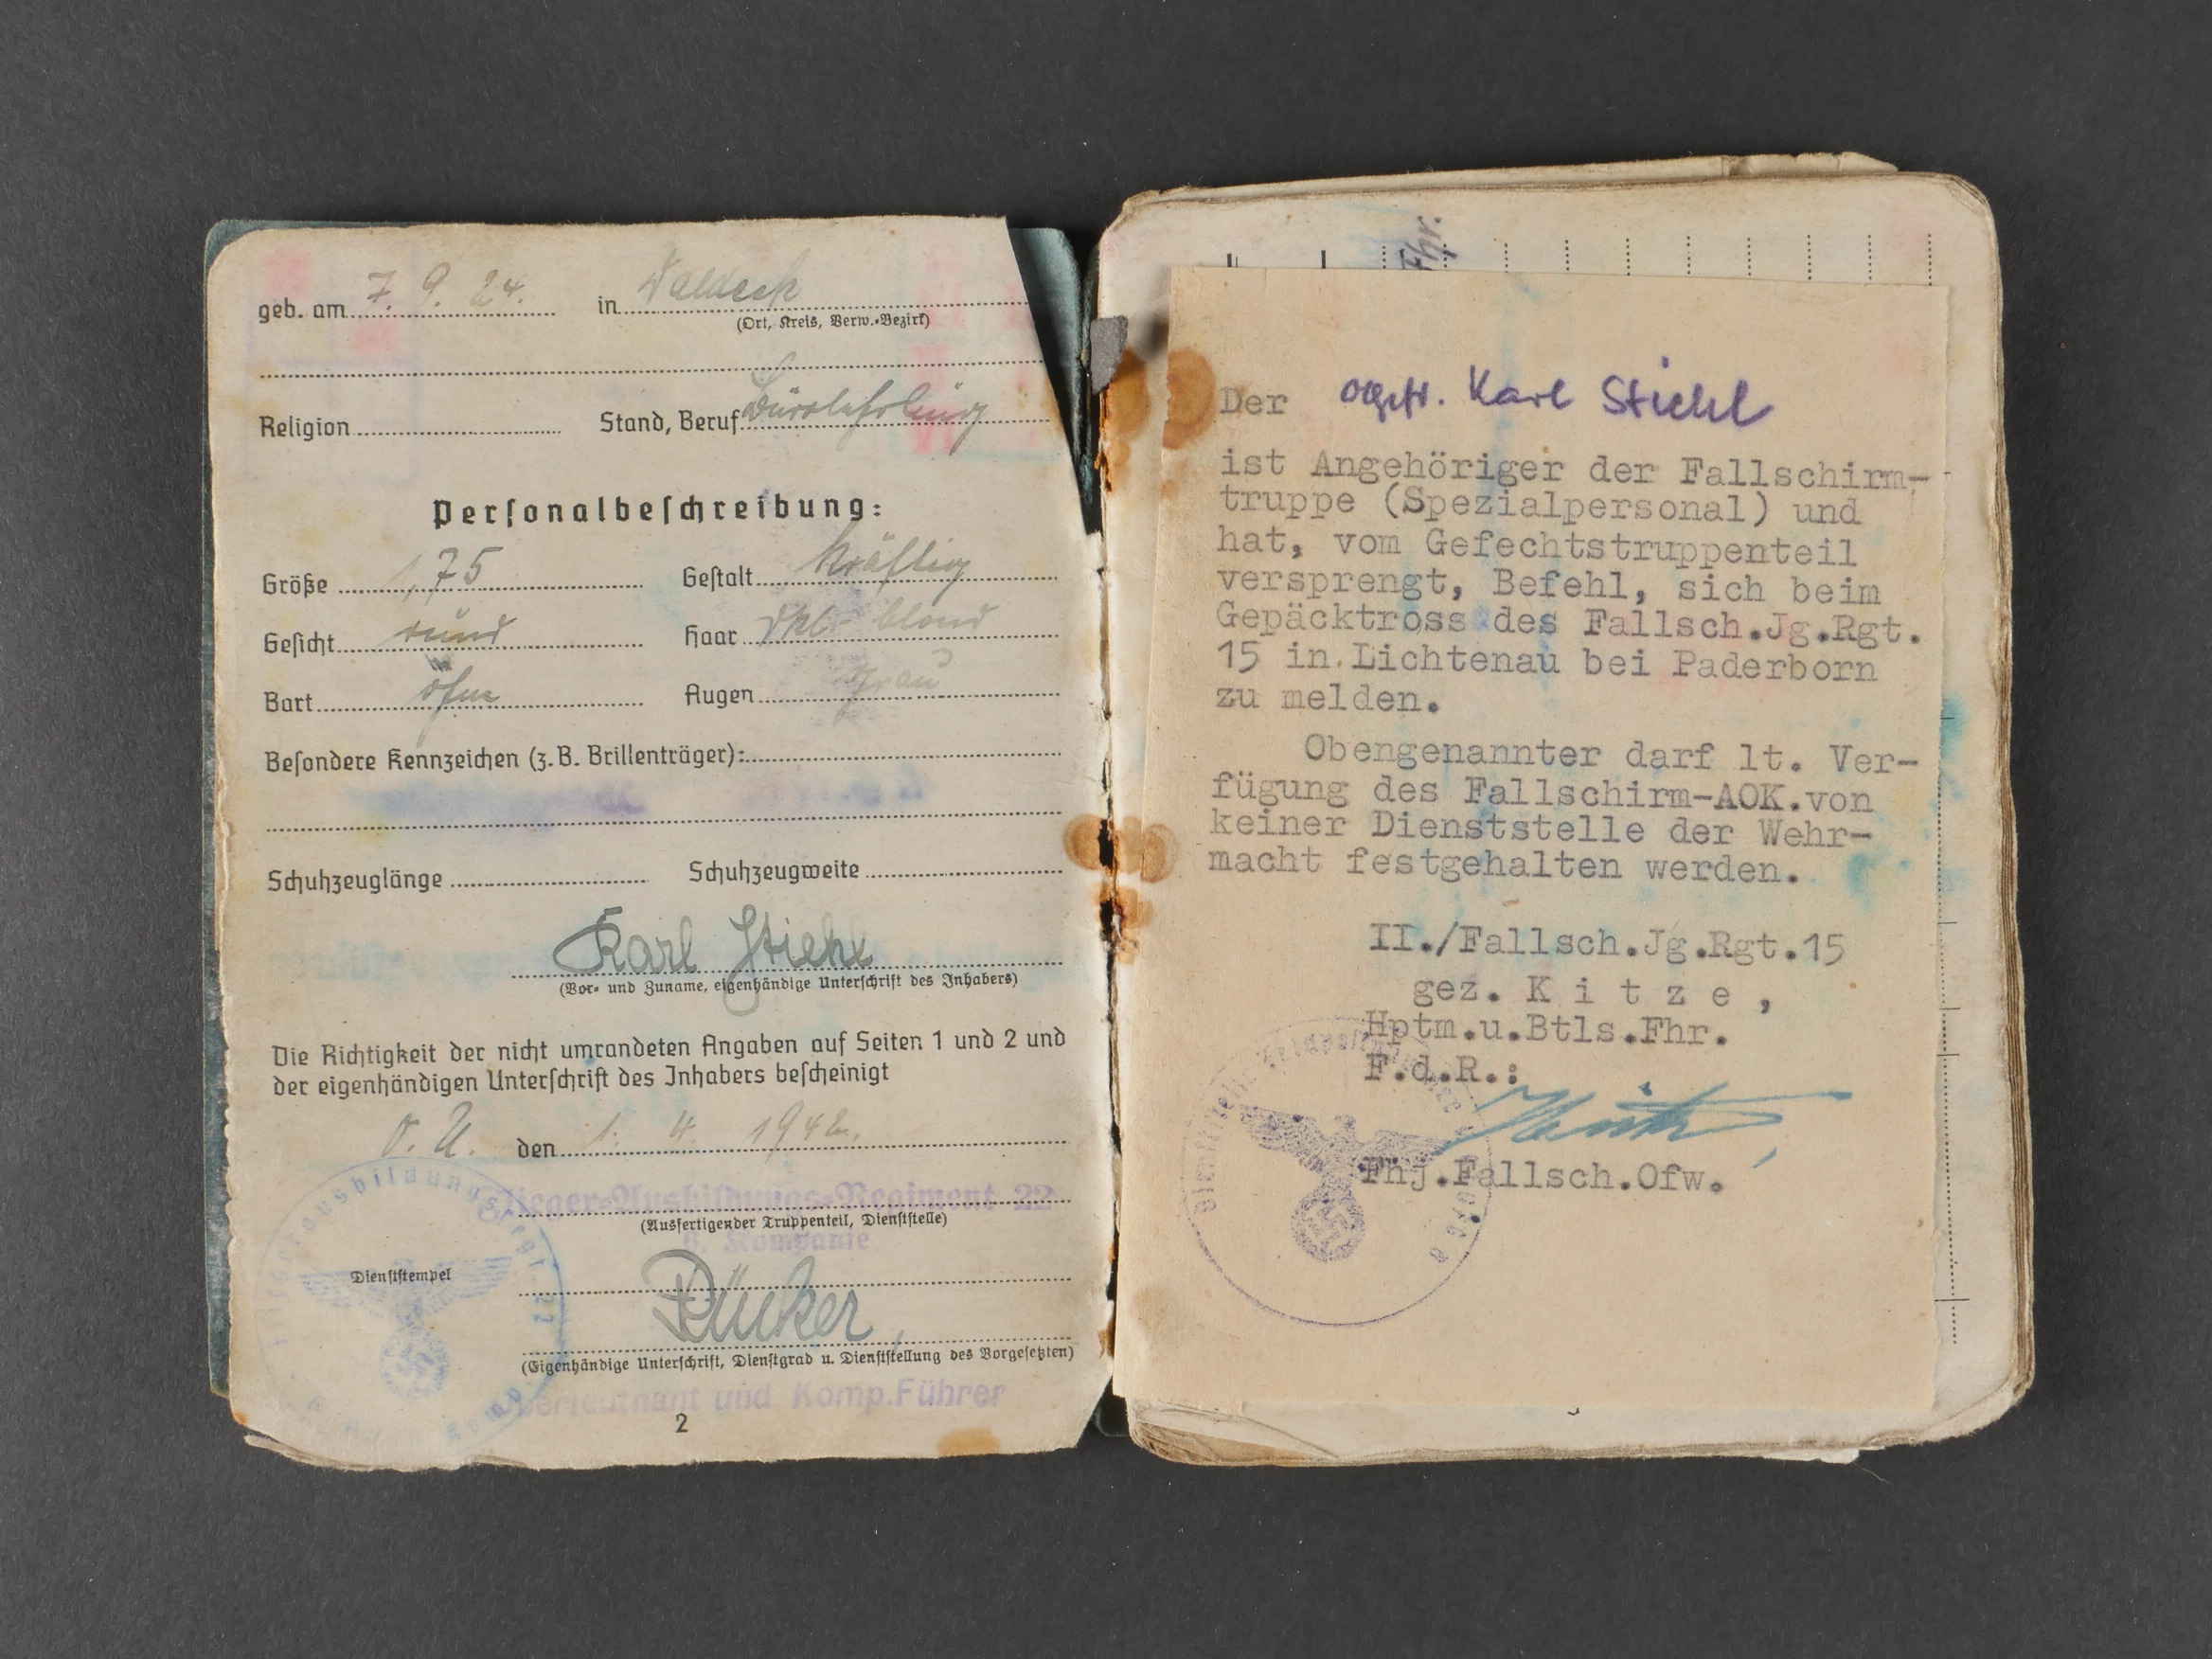 geb. am 7. 9. 24. in Waldeck
(Ort, Kreis, Verw.-Bezirk)
Religion Stand, Beruf Bürolehrling
Personalbeschreibung:
Größe 1,75 Gestalt kräftig
Gesicht rund Haar dkl. blond
Bart ohne Augen grau
Besondere Kennzeichen (z. B. Brillenträger):
Schuhzeuglänge Schuhzeugweite
Karl Stiehl
(Vor- und Zuname, eigenhändige Unterschrift des Inhabers)
Die Richtigkeit der nicht umrandeten Angaben auf Seiten 1 und 2 und
der eigenhändigen Unterschrift des Inhabers bescheinigt
O. U. den 1. 4. 1942.
Flieger-Ausbildungs-Regiment 22
(Ausfertigender Truppenteil, Dienststelle)
Kompanie
Dienststempel
(Eigenhändige Unterschrift, Dienstgrad u. Dienststellung des Vorgesetzten)
Oberleutnant und Komp.Führer
2
Fhr.
Der Ogefr. Karl Stiehl
ist Angehöriger der Fallschirm-
truppe (Spezialpersonal) und
hat, vom Gefechtstruppenteil
versprengt, Befehl, sich beim
Gepäcktross des Fallsch.Jg.Rgt.
15 in Lichtenau bei Paderborn
zu melden.
Obengenannter darf lt. Ver-
fügung des Fallschirm-AOK.von
keiner Dienststelle der Wehr-
macht festgehalten werden.
II./Fallsch.Jg.Rgt.15
gez. K i t z e ,
Hptm.u.Btls.Fhr.
F.d.R.:
Fhj.Fallsch.Ofw.